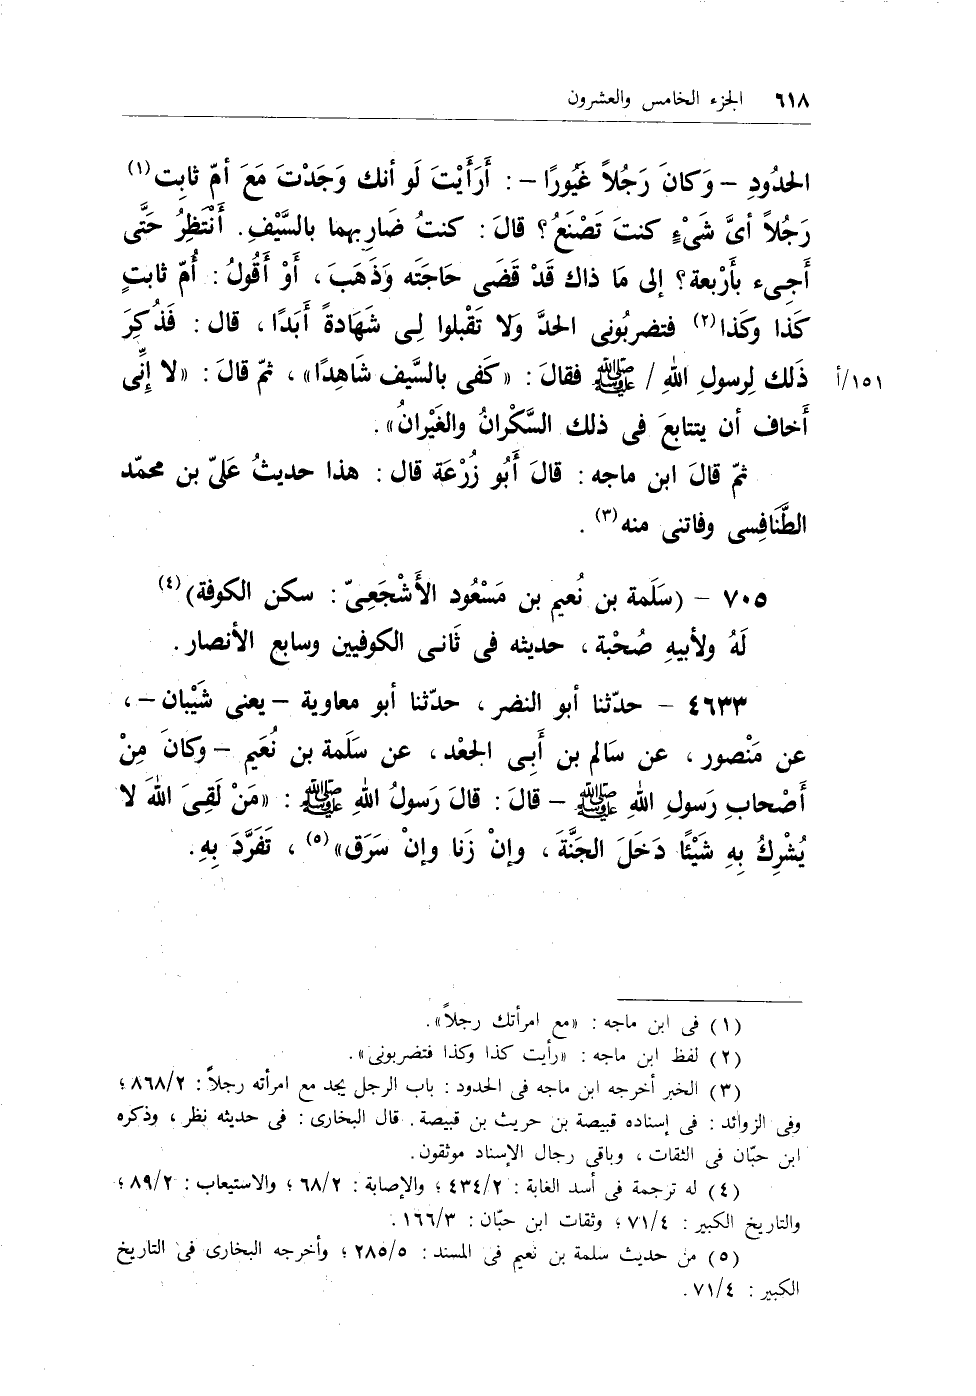 ٦١٨ الجزء الخامس والعشرون
الحدُودِ – وَكانَ رَجُلاً غَيُورًا – : أَرَأَيْتَ لَو أنك وَجَدْتَ مَعَ أمّ ثابِت(١)
رَجُلاً أىَّ شَىْءٍ كنتَ تَصْنَعُ؟ قالَ : كنتُ ضَارِبهما بالسَّيْفِ. أَنْتَظِرُ حَتَّى
أَجِىء بأَرْبعة؟ إلى مَا ذاك قَدْ قَضَى حَاجَتَه وَذَهَبَ ، أَوْ أَقُولُ : أُمّ ثابتٍ
كَذا وكَذا(٢) فتضربُونى الحدَّ وَلا تَقْبلوا لِى شَهَادةً أَبَدًا ، قال : فَذُكِرَ
١٥١/أ ذَلك لِرسولِ اللهِ / ﷺ فقالَ : «كَفى بالسَّيف شَاهِدًا» ، ثمّ قالَ : «لا إِنِّى
أَخاف أن يتتابعَ فى ذلك السَّكْرانُ والغَيْرانُ» .
ثمّ قالَ ابن ماجه : قالَ أَبُو زُرْعَة قال : هذا حديثُ عَلىّ بن محمّد
الطَّنافِسى وفاتنى منه(٣) .
٧٠٥ – (سَلَمة بن نُعيم بن مَسْعُود الأَشْجَعِىّ : سكن الكوفة)(٤)
لَهُ ولأبيهِ صُحْبة ، حديثه فى ثَانى الكوفيين وسابع الأنصار .
٤٦٣٣ – حدّثنا أبو النضر ، حدّثنا أبو معاوية – يعنى شَيْبان – ،
عن مَنْصور ، عن سَالم بن أَبِى الجعْد ، عن سَلَمة بن نُعَيم – وكانَ مِنْ
أَصْحابِ رَسولِ اللهِ ﷺ – قالَ : قالَ رَسولُ اللهِ ﷺ : «مَنْ لَقِىَ اللهَ لا
يُشْرِكُ بِهِ شَيْئًا دَخَلَ الجَنَّةَ ، وإنْ زَنا وإنْ سَرَق»(٥) ، تَفَرَّدَ بِهِ .
(١) فى ابن ماجه : «مع امرأتك رجلاً» .
(٢) لفظ ابن ماجه : «رأيت كذا وكذا فتضربونى» .
(٣) الخبر أخرجه ابن ماجه فى الحدود : باب الرجل يجد مع امرأته رجلاً : ٨٦٨/٢ ؛
وفى الزوائد : فى إسناده قبيصة بن حريث بن قبيصة . قال البخارى : فى حديثه نظر ، وذكره
ابن حبّان فى الثقات ، وباقى رجال الإسناد موثقون .
(٤) له ترجمة فى أسد الغابة : ٤٣٤/٢ ؛ والإصابة : ٦٨/٢ ؛ والاستيعاب : ٨٩/٢ ؛
والتاريخ الكبير : ٧١/٤ ؛ وثقات ابن حبّان : ١٦٦/٣ .
(٥) من حديث سلمة بن نعيم فى المسند : ٢٨٥/٥ ؛ وأخرجه البخارى فى التاريخ
الكبير : ٧١/٤ .